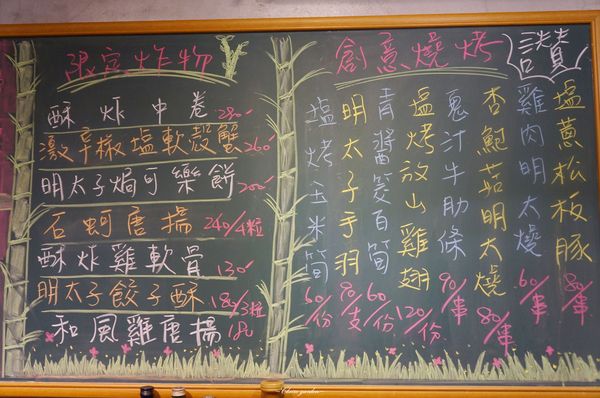 限定炸物
酥炸中卷 280
激辛椒塩軟殼蟹 260
明太子焗可樂餅 200
石蚵唐揚 240/4粒
酥炸雞軟骨 130
明太子餃子酥 180/3粒
和風雞唐揚 180
創意燒烤
讚
塩蔥松板豚 80/串
雞肉明太燒 60/串
杏鮑菇明太燒 80/串
蔥汁牛肋條 90/串
塩烤放山雞翅 120/份
青醬筊白筍 60/份
明太子手羽 90/支
塩烤玉米筍 60/份